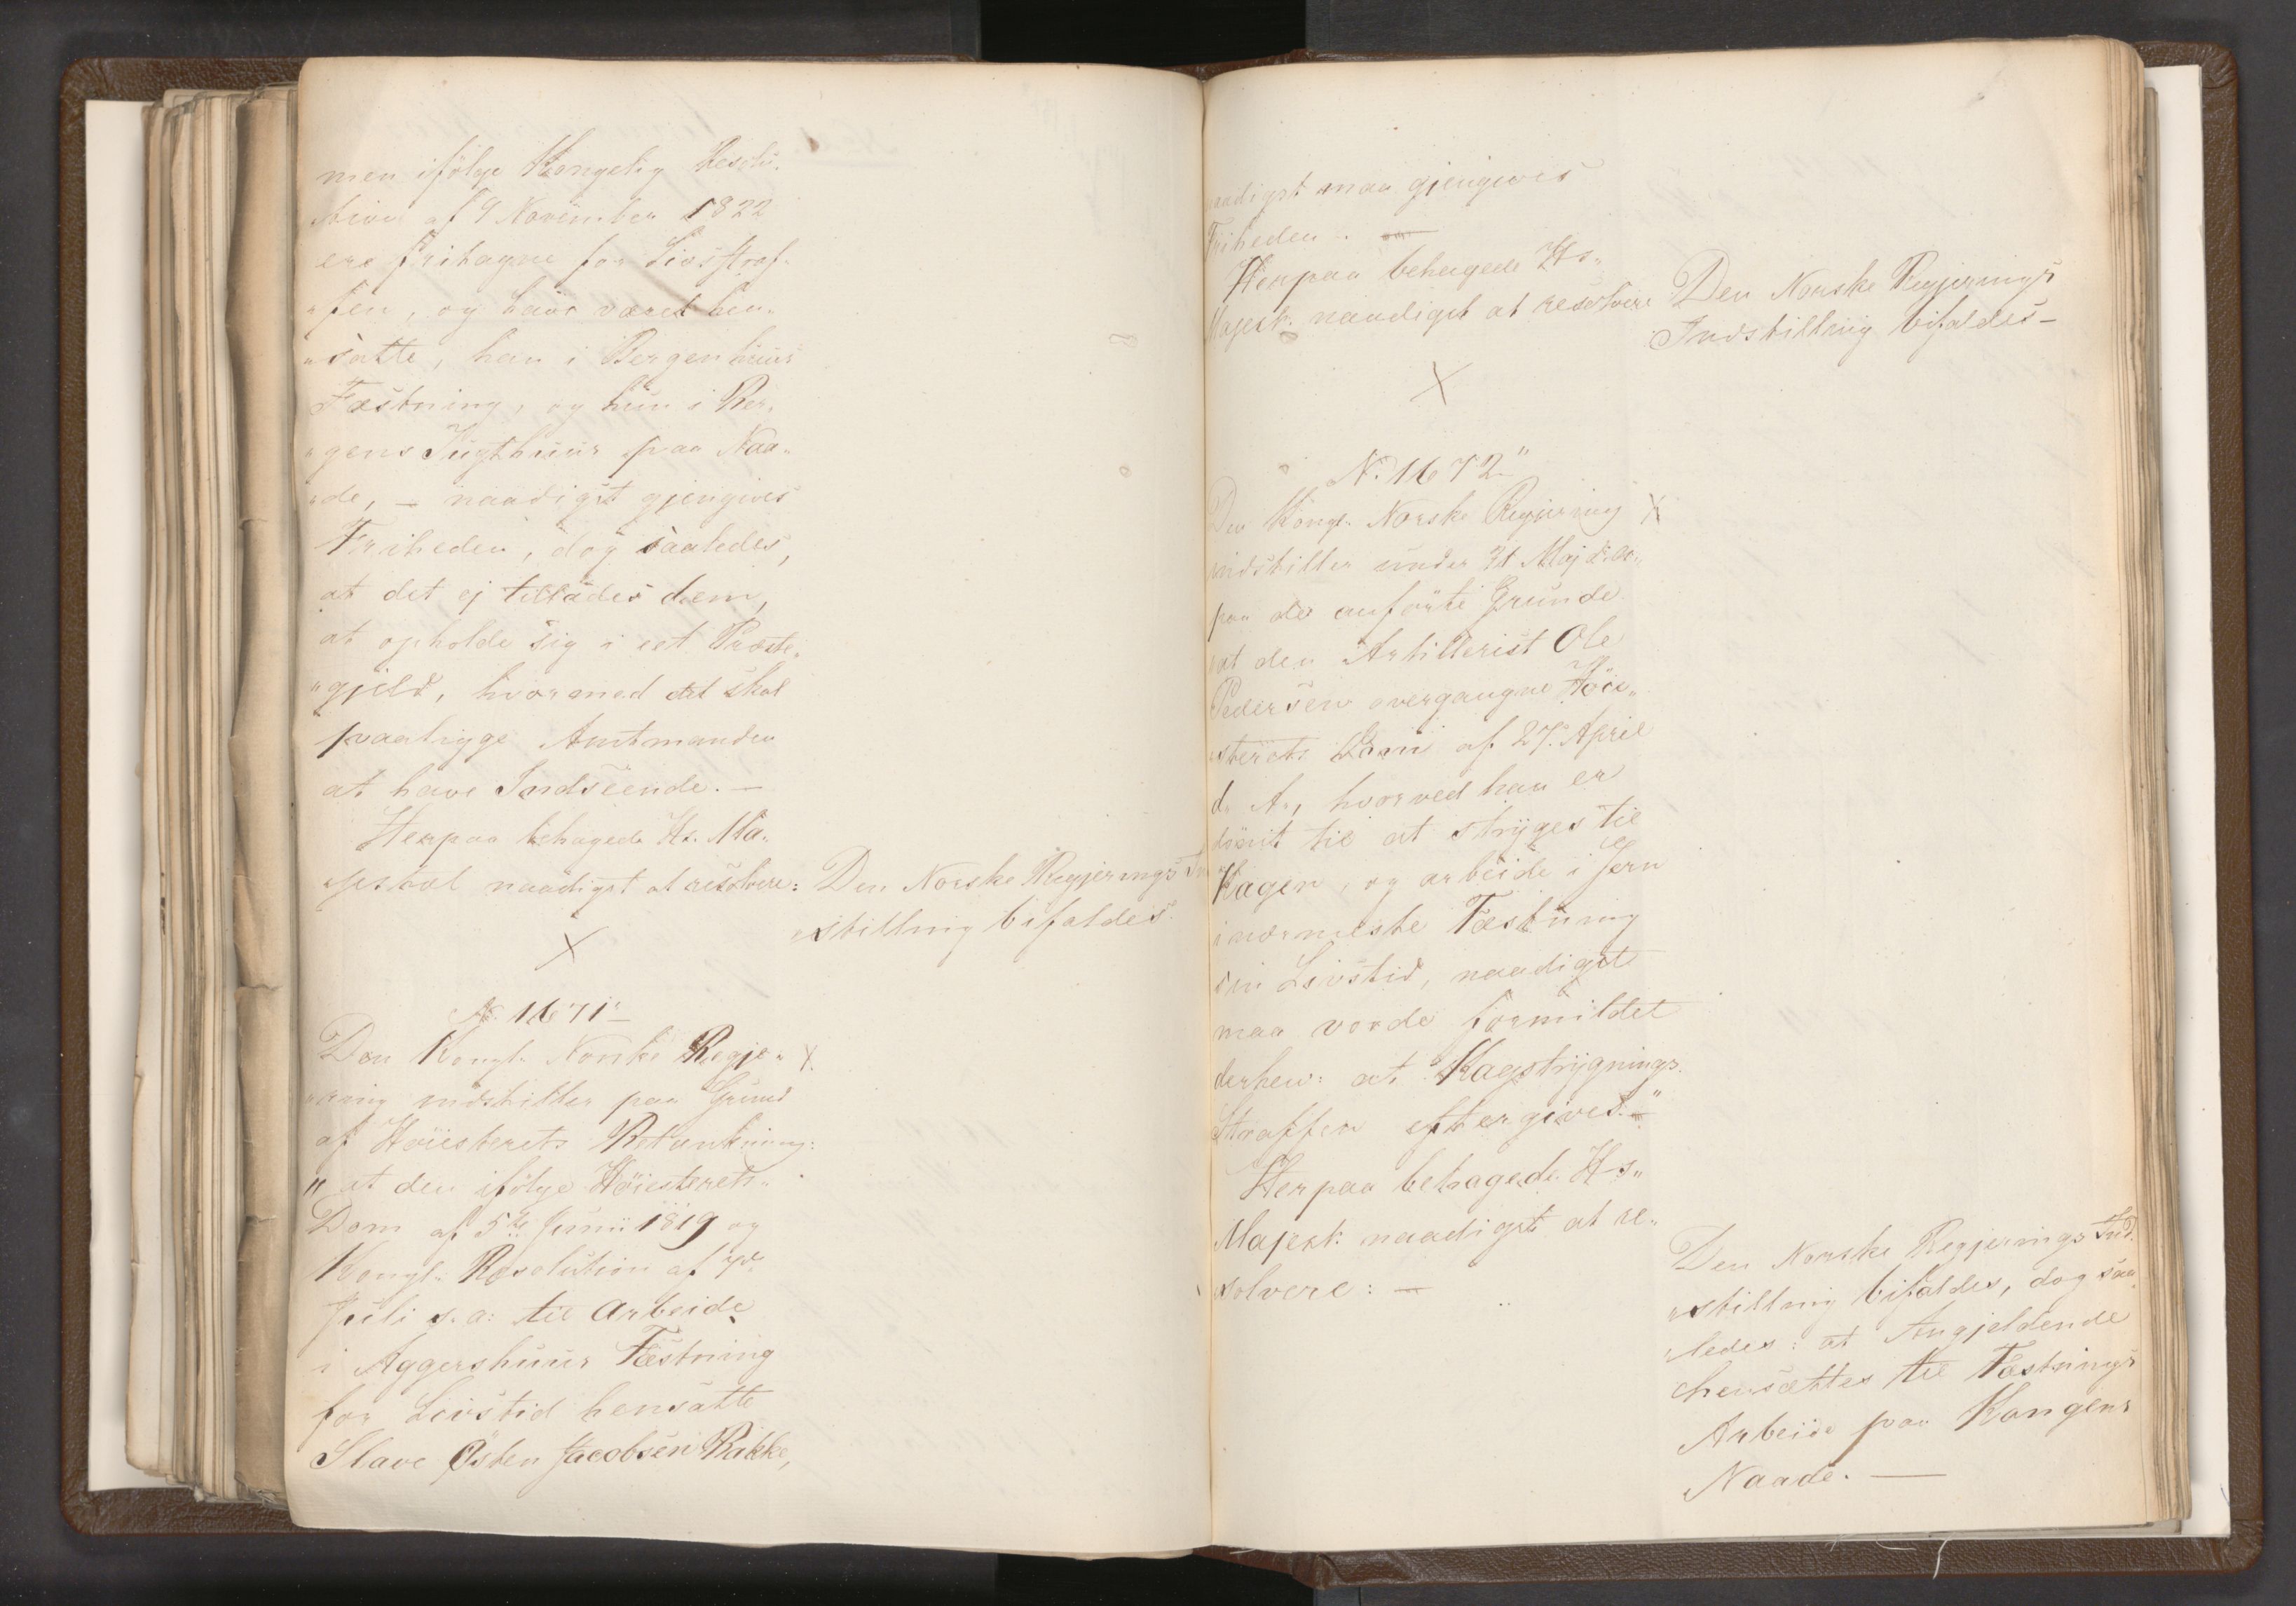 men ifölge Kongelig Resolu-
tion af 9 November 1822
ere fritagne for Livsstraf-
"fen, og have været hen-
"satte, han i Bergenhuus
Fæstning, og hun i Ber-
"gens Tugthuus paa Naa-
"de, — naadigst gjengives
Friheden, dog saaledes,
at det ej tillades dem,
at opholde sig i eet Præste-
"gjeld, hvormed det skal
paaligge Amtmanden
at have Indseende. —
Herpaa behagede Hs. Ma-
jestæt naadigst at resolvere:
Den Norske Regjerings In
"stilling bifaldes.
X
N. 1671"
Den Kongl. Norske Regje- X.
"ring indstiller paa Grund
af Høiesterets Betænkning:
" at den ifølge Høiesterets
Dom af 5te Junii 1819 og
Kongl. Resolution af
Juli s. a: til Arbeide
i Aggershuus Fæstning
for Livstid hensatte
Slave Østen Jacobsen Bakke,
naadigst maa gjengives
Friheden. —
Herpaa behagede Hs.
Majest. naadigst at resolvere
Den Norske Regjerings
Indstilling bifaldes —
X
N. 1672"
Den Kongl. Norske Regjering X
indstiller under 31 Maj
paa de anførte Grunde
"at den Artillerist Ole
Pedersen overgangne Høie-
"sterets Dom af 27. April
d. A., hvorved han er
dömt til at stryges til
Kagen, og arbeide i Jern
i nærmeste Fæstning
sin Livstid, naadigst
maa vorde formildet
derhen: at Kagstrygnings
Straffen eftergives. —"
Herpaa behagede Hs"
Majest: naadigst at re-
solvere: —
Den Norske Regjerings Ind-
"stilling bifaldes, dog saa-
"ledes: at Angjeldende
hensættes til Fæstnings
Arbeide paa Kongens
Naade. —